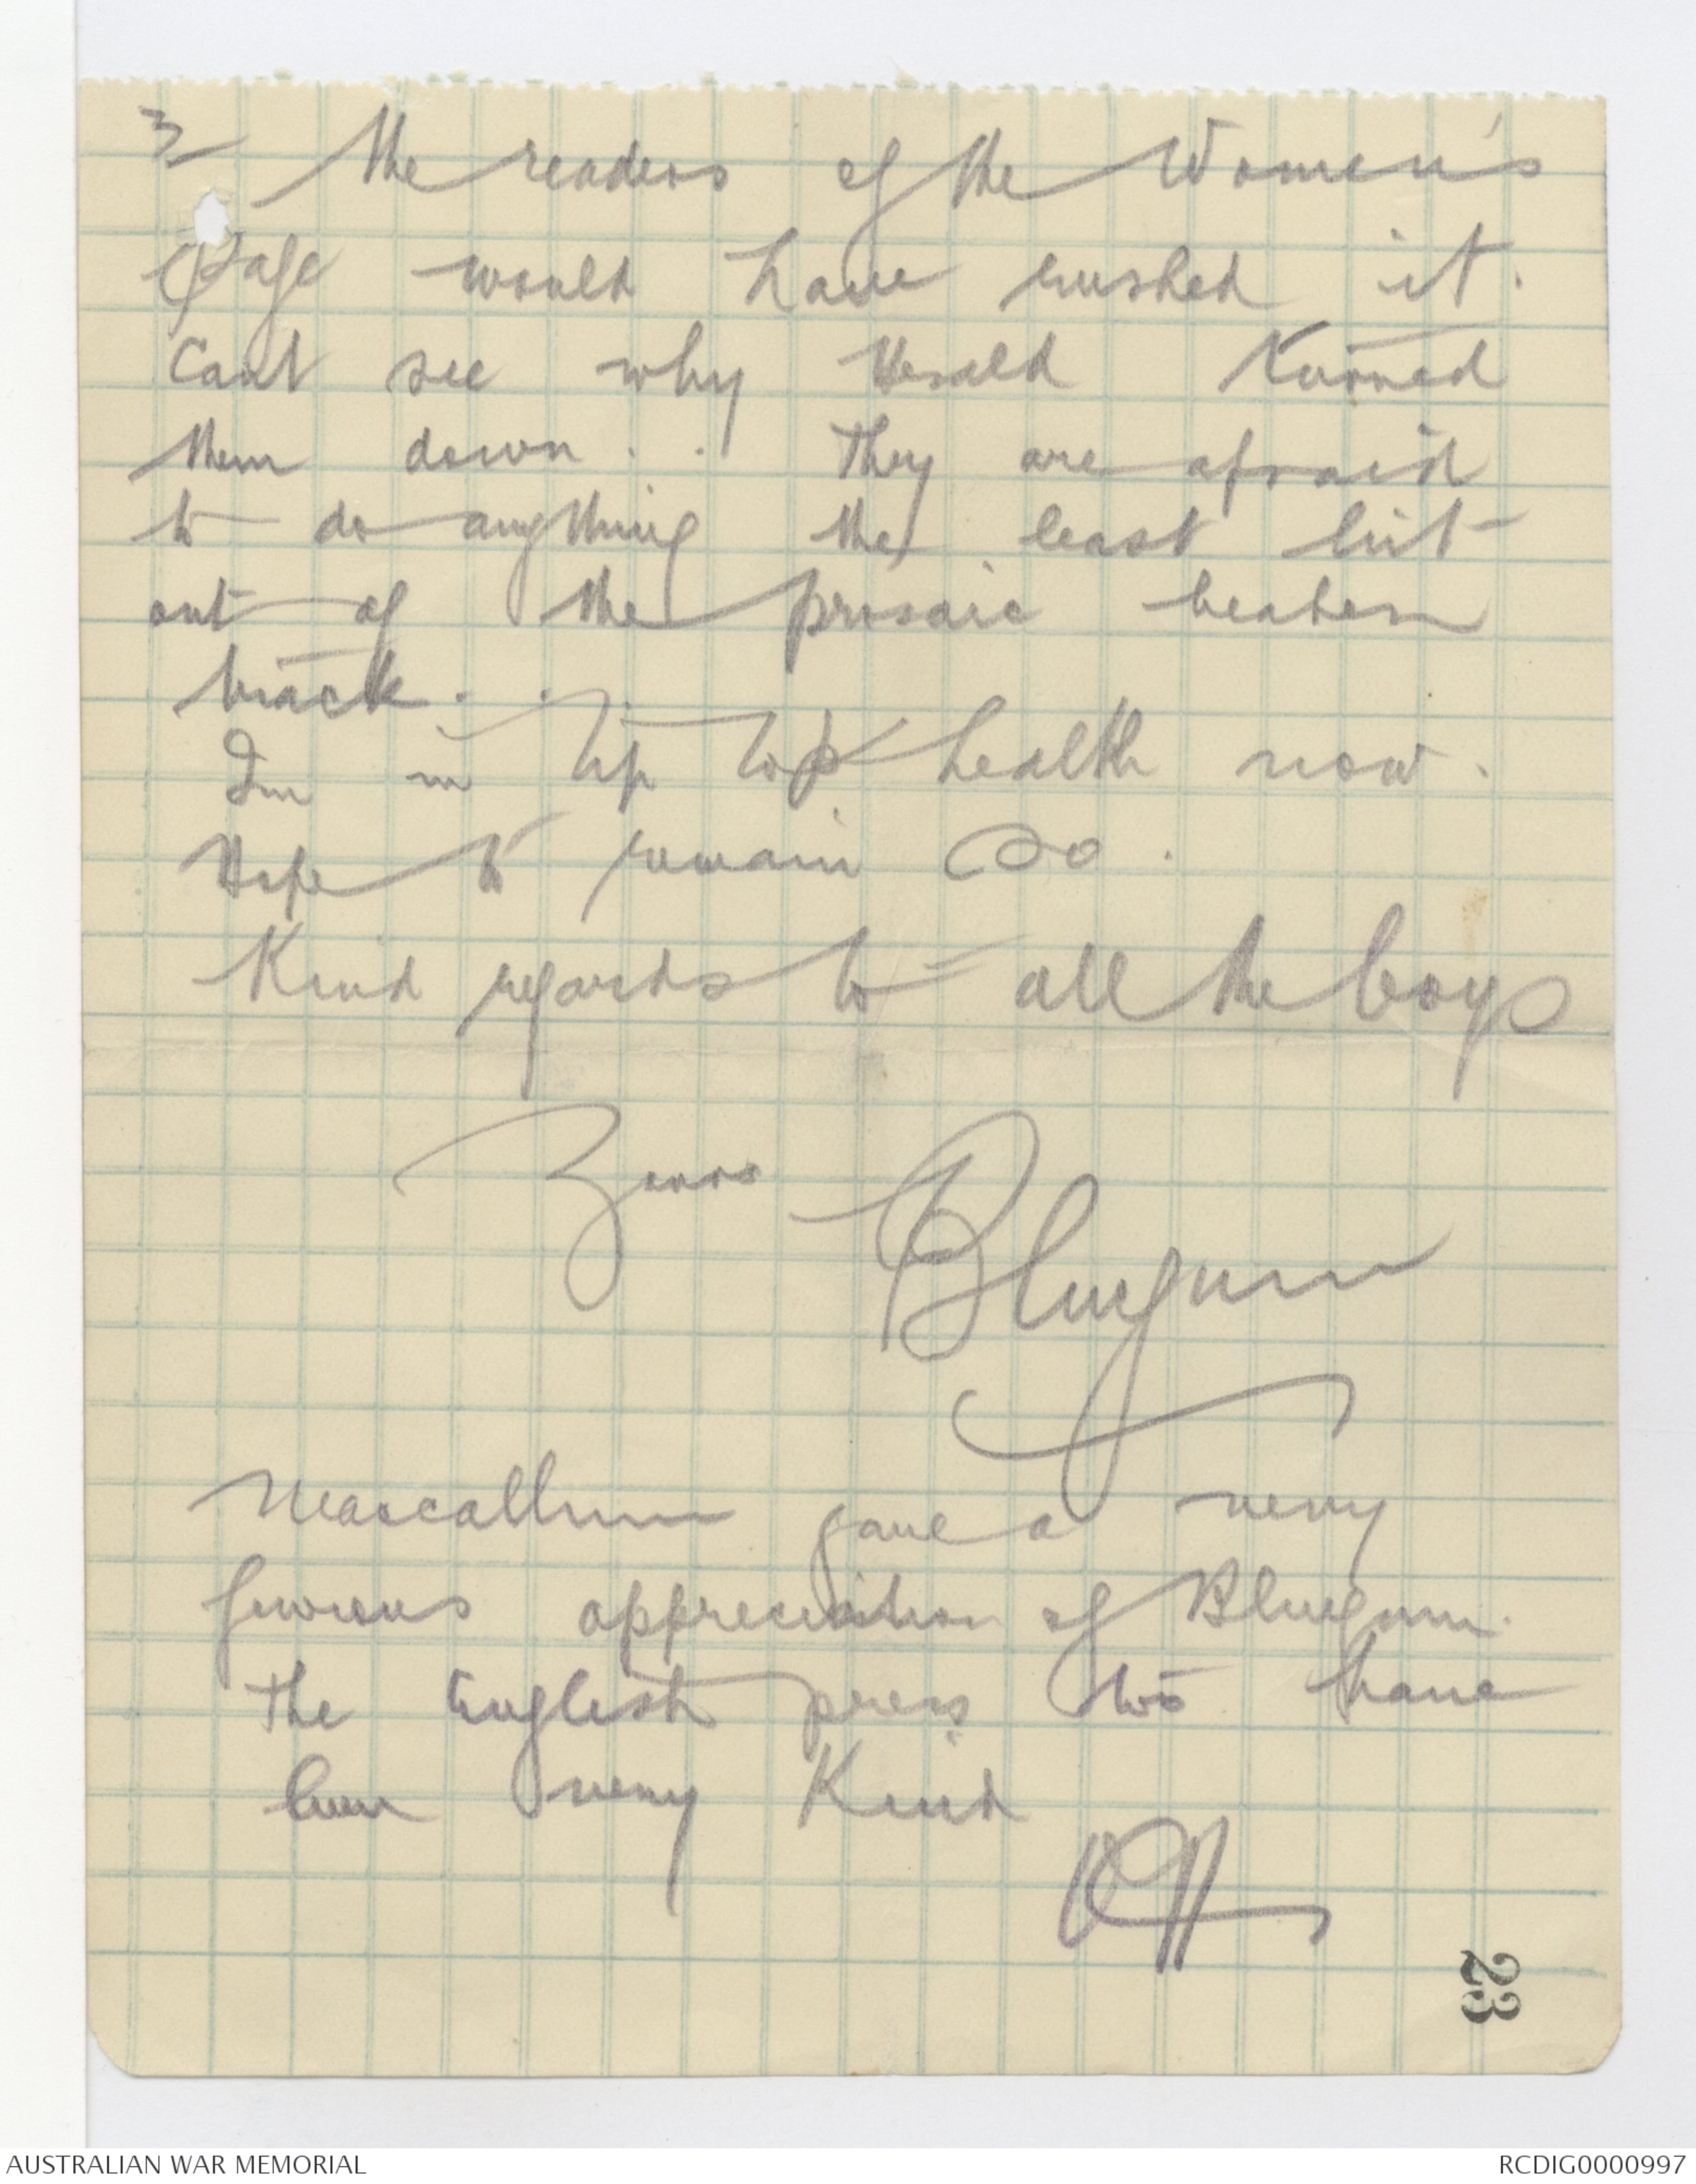 3
The readers of the Women's
Page would have rushed it.
Cant see why Herald turned
them down. . They are afraid
to do anything the least bit
out of the prosaic beaten
track. .
Im in tip top health now.
Hope to remain so.
Kind regards to all the boys
Yours
Bluegum
Maccallum gave a very
generous appreciation of Bluegum.
The English press too have
been very kind
OH
23
AUSTRALIAN WAR MEMORIAL
RCDIG0000997